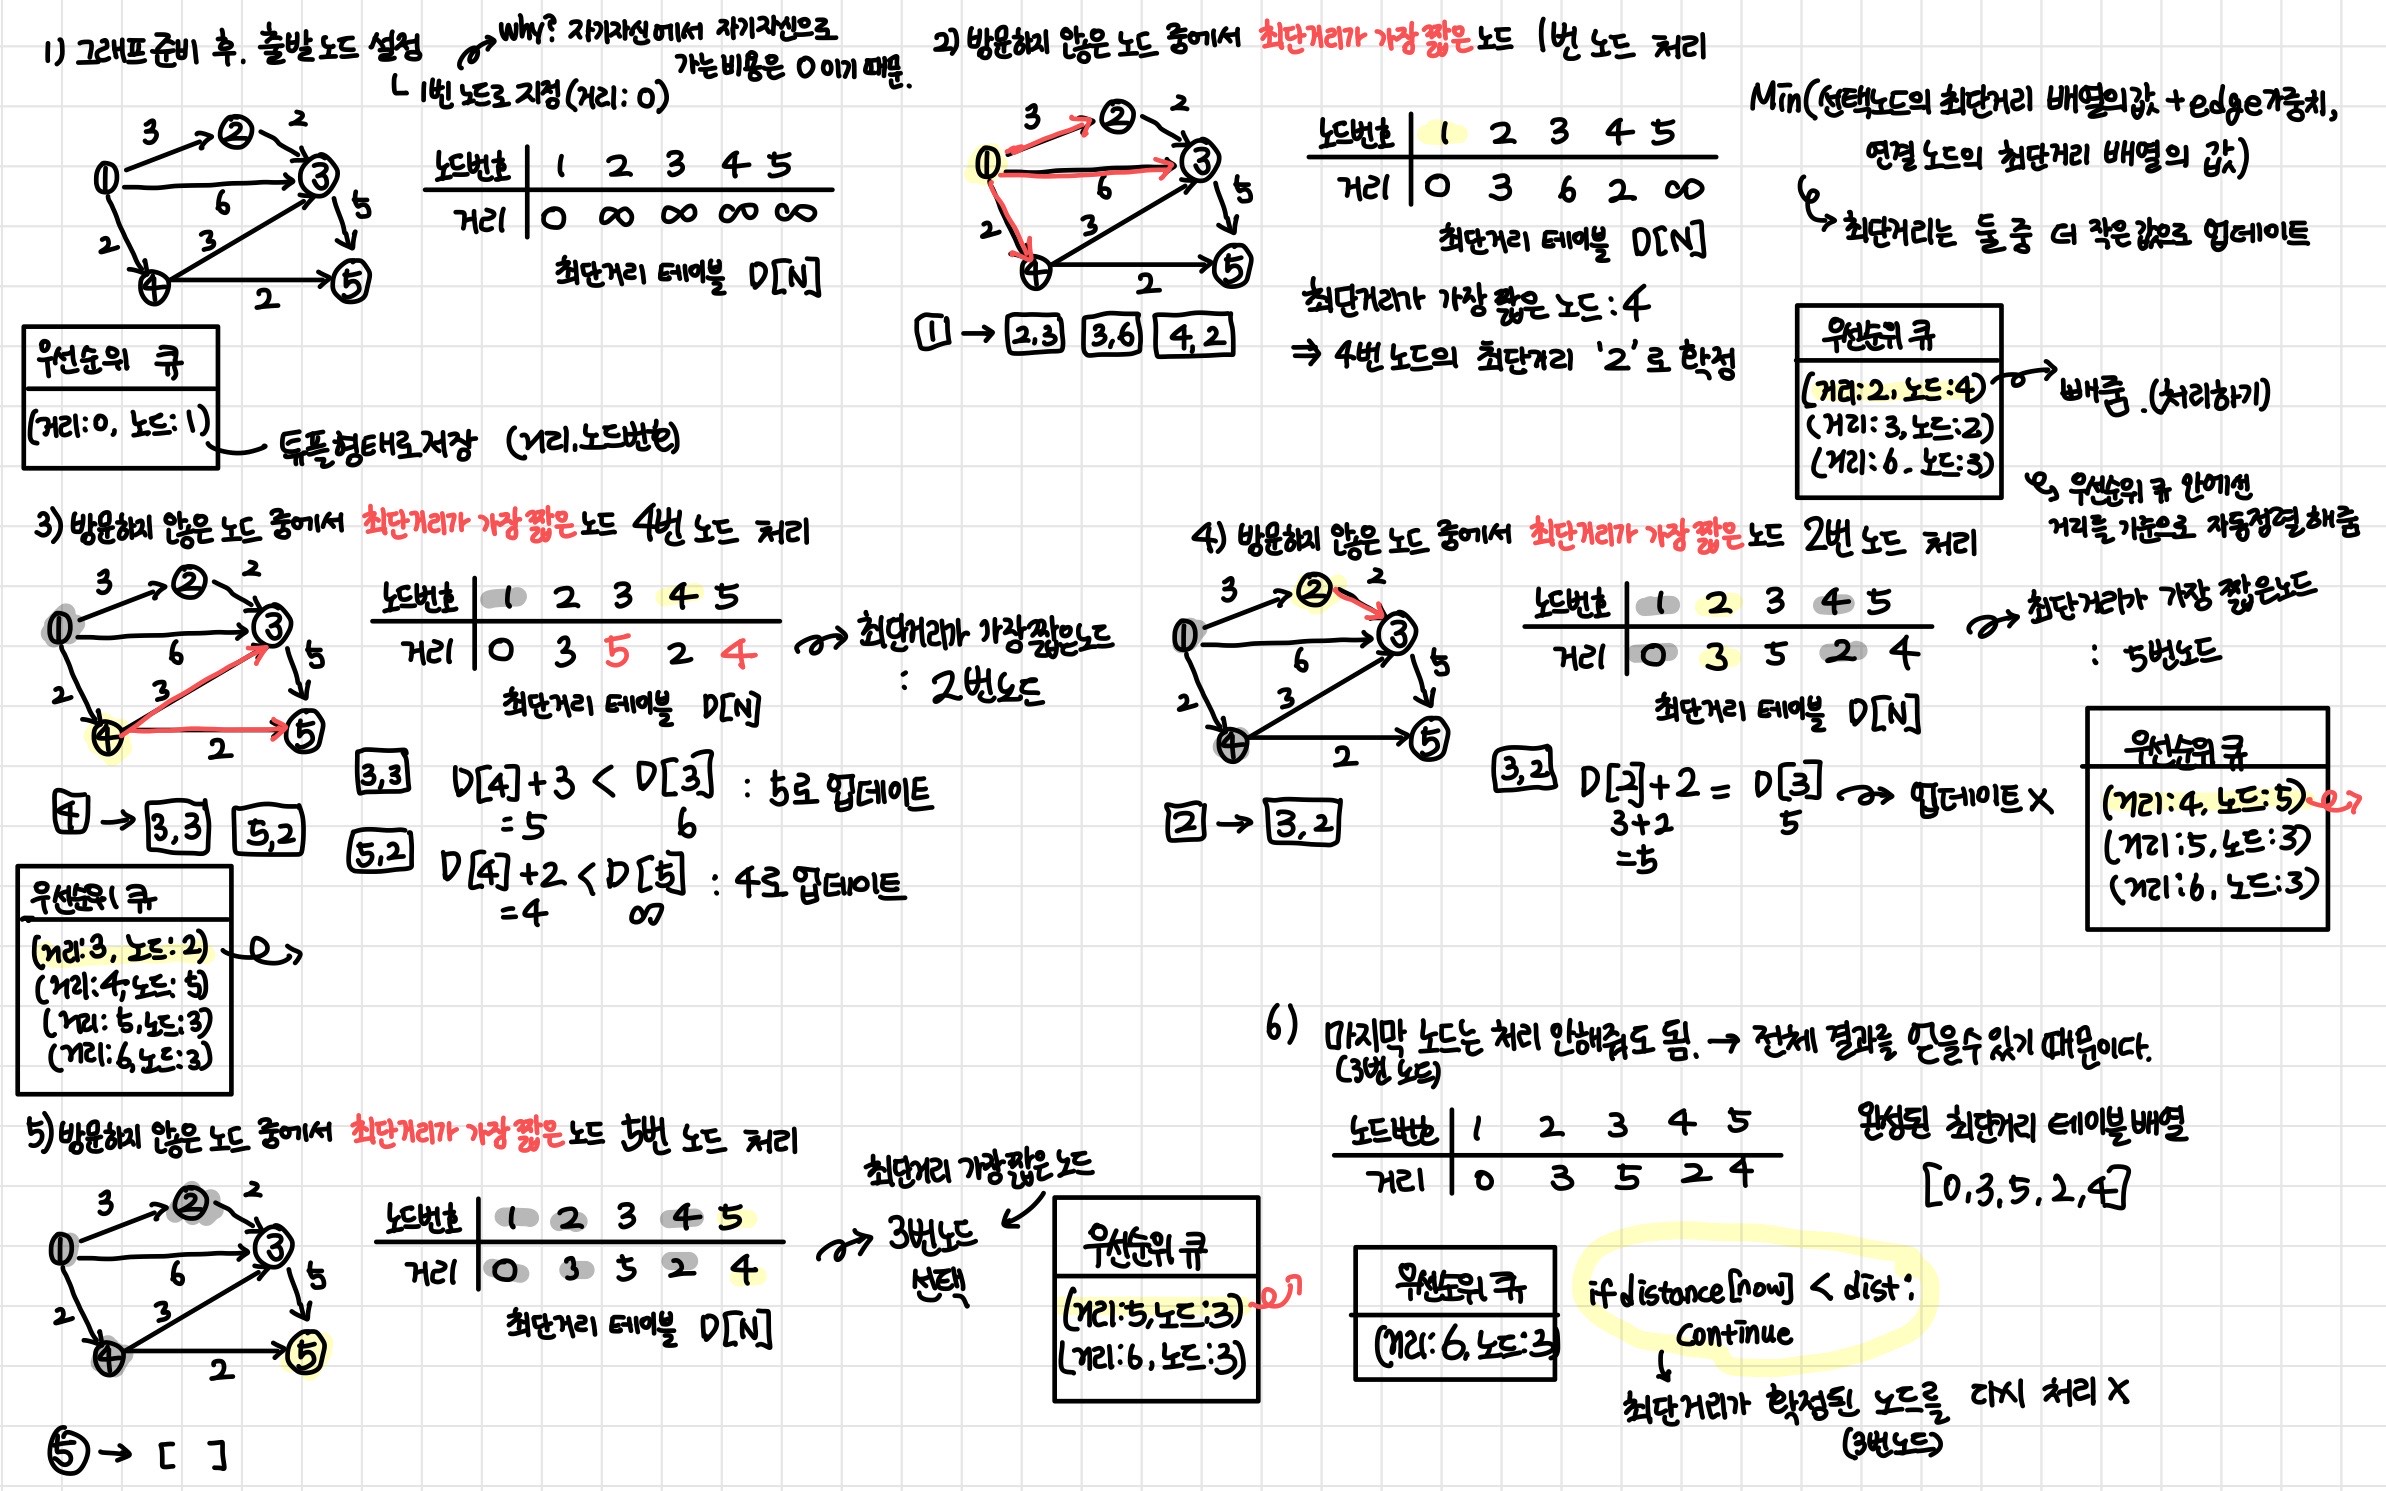 1) 그래프 준비 후. 출발 노드 설정
└ 1번 노드로 지정 (거리: 0)
why? 자기자신에서 자기자신으로
가는 비용은 0이기 때문.
3 2 6 5 2 3 2
1 2 3 4 5
노드번호 1 2 3 4 5
거리 0 ∞ ∞ ∞ ∞
최단거리 테이블 D[N]
우선순위 큐
(거리:0, 노드:1)
튜플형태로 저장 (거리, 노드번호)
2) 방문하지 않은 노드 중에서 최단거리가 가장 짧은 노드 1번 노드 처리
3 2 6 5 2 3 2
1 2 3 4 5
1 → 2,3 3,6 4,2
노드번호 1 2 3 4 5
거리 0 3 6 2 ∞
최단거리 테이블 D[N]
최단거리가 가장 짧은 노드 : 4
⇒ 4번 노드의 최단거리 '2'로 확정
Min(선택노드의 최단거리 배열의 값 + edge가중치,
연결 노드의 최단거리 배열의 값)
→ 최단거리는 둘 중 더 작은 값으로 업데이트
우선순위 큐
(거리:2, 노드:4) → 빼줌. (처리하기)
(거리:3, 노드:2)
(거리:6, 노드:3)
우선순위 큐 안에선
거리를 기준으로 자동정렬해줌
3) 방문하지 않은 노드 중에서 최단거리가 가장 짧은 노드 4번 노드 처리
3 2 6 5 2 3 2
1 2 3 4 5
노드번호 1 2 3 4 5
거리 0 3 5 2 4
최단거리 테이블 D[N]
최단거리가 가장 짧은 노드
: 2번노드
4 → 3,3 5,2
3,3 D[4]+3 < D[3] : 5로 업데이트
=5 6
5,2 D[4]+2 < D[5] : 4로 업데이트
=4 ∞
우선순위 큐
(거리:3, 노드:2)
(거리:4, 노드:5)
(거리:5, 노드:3)
(거리:6, 노드:3)
4) 방문하지 않은 노드 중에서 최단거리가 가장 짧은 노드 2번 노드 처리
3 2 6 5 2 3 2
1 2 3 4 5
노드번호 1 2 3 4 5
거리 0 3 5 2 4
최단거리 테이블 D[N]
최단거리가 가장 짧은 노드
: 5번노드
2 → 3,2
3,2 D[2]+2 = D[3] → 업데이트 X
3+2 5
=5
우선순위 큐
(거리:4, 노드:5)
(거리:5, 노드:3)
(거리:6, 노드:3)
5) 방문하지 않은 노드 중에서 최단거리가 가장 짧은 노드 5번 노드 처리
3 2 6 5 2 3 2
1 2 3 4 5
5 → [ ]
노드번호 1 2 3 4 5
거리 0 3 5 2 4
최단거리 테이블 D[N]
최단거리 가장 짧은 노드
3번노드
선택
우선순위 큐
(거리:5, 노드:3)
(거리:6, 노드:3)
6) 마지막 노드는 처리 안해줘도 됨. → 전체 결과를 얻을수 있기 때문이다.
(3번 노드)
노드번호 1 2 3 4 5
거리 0 3 5 2 4
완성된 최단거리 테이블 배열
[0,3,5,2,4]
우선순위 큐
(거리:6, 노드:3)
if distance[now] < dist:
continue
최단거리가 확정된 노드를 다시 처리 X
(3번노드)